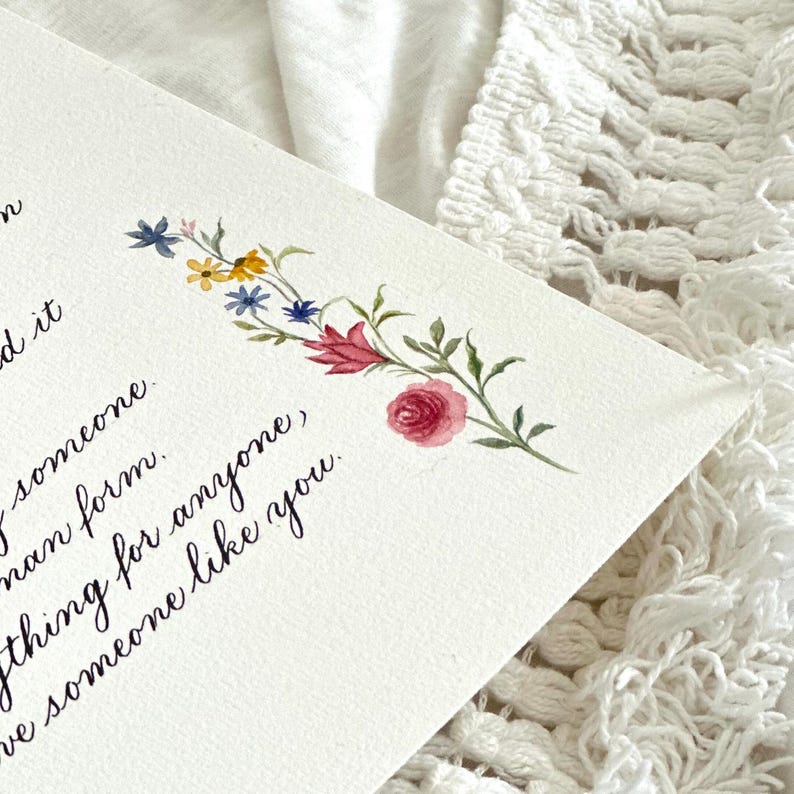 it
someone.
man form.
ything for anyone,
ve someone like you.